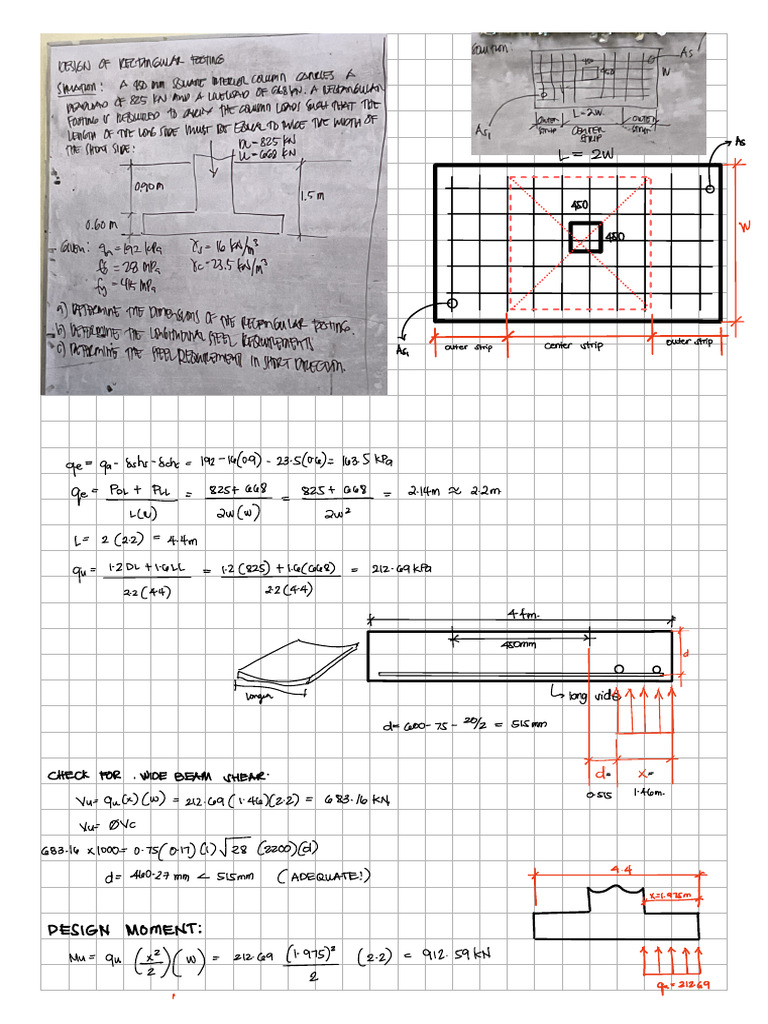 DESIGN OF RECTANGULAR FOOTING
Situation: A 450 mm SQUARE INTERIOR COLUMN CARRIES A
DEADLOAD OF 825 KN AND A LIVELOAD OF 668 KN. A RECTANGULAR
FOOTING IS REQUIRED TO CARRY THE COLUMN LOADS SUCH THAT THE
LENGTH OF THE LONG SIDE MUST BE EQUAL TO TWICE THE WIDTH OF
THE SHORT SIDE:
DL = 825 KN
LL = 668 KN
0.90m
1.5 m
0.60 m
Given: qa = 192 kPa γs = 16 KN/m³
f'c = 28 MPa γc = 23.5 KN/m³
fy = 415 MPa
a) DETERMINE THE DIMENSIONS OF THE RECTANGULAR FOOTING.
b) DETERMINE THE LONGITUDINAL STEEL REQUIREMENTS
c) DETERMINE THE STEEL REQUIREMENT IN SHORT DIRECTION.
Solution:
As
450
W
As1
L=2W
OUTER STRIP
CENTER STRIP
OUTER STRIP
L = 2W
As
450
450
W
As1
outer strip
center strip
outer strip
qe = qa - γshs - γchc = 192 - 16(0.9) - 23.5(0.6) = 163.5 kPa
qe = PDL + PLL / L(W) = 825 + 668 / 2W(W) = 825 + 668 / 2W² = 2.14m ≈ 2.2m
L = 2(2.2) = 4.4m
qu = 1.2DL + 1.6LL / 2.2(4.4) = 1.2(825) + 1.6(668) / 2.2(4.4) = 212.69 kPa
4.4m.
450mm
d
longer
long side
d = 600 - 75 - 20/2 = 515mm
d=
x=
0.515
1.46m.
CHECK FOR . WIDE BEAM SHEAR.
Vu = qu(x)(w) = 212.69(1.46)(2.2) = 683.16 KN
Vu = ØVc
683.16 x 1000 = 0.75(0.17)(1)√28 (2200)(d)
d = 460.27 mm < 515mm (ADEQUATE!)
4.4
x=1.975m
DESIGN MOMENT:
Mu = qu (x²/2)(W) = 212.69 (1.975)²/2 (2.2) = 912.59 KN
qu = 212.69